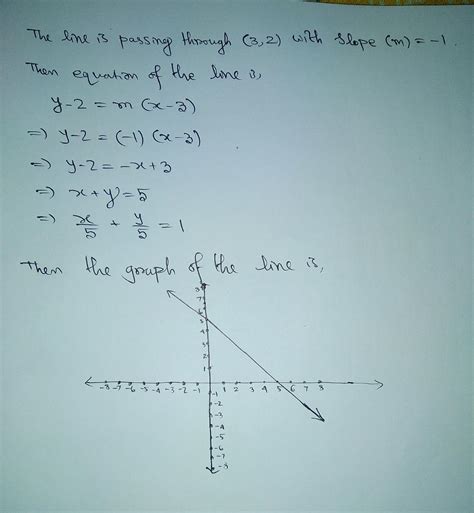 The line is passing through (3,2) with slope (m) = -1.
Then equation of the line is,
y-2 = m (x-3)
=) y-2 = (-1) (x-3)
=) y-2 = -x+3
=) x+y = 5
=) x/5 + y/5 = 1
Then the graph of the line is,
8
7
6
5
4
3
2
1
-8 -7 -6 -5 -4 -3 -2 -1 1 2 3 4 5 6 7 8
-1
-2
-3
-4
-5
-6
-7
-8